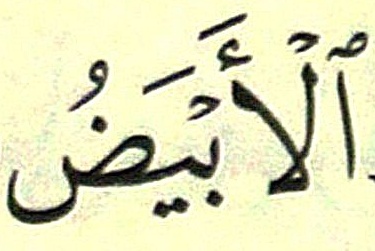 ٱلْأَبْيَضُ